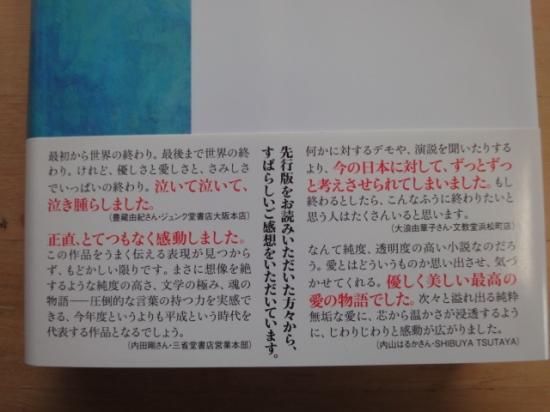 最初から世界の終わり。最後まで世界の終
わり。けれど、優しさと愛しさと、さみしさ
でいっぱいの終わり。泣いて泣いて、
泣き腫らしました。
(豊蔵由紀さん・ジュンク堂書店大阪本店)
正直、とてつもなく感動しました。
この作品をうまく伝える表現が見つから
ず、もどかしい限りです。まさに想像を絶
するような純度の高さ、文学の極み、魂の
物語――圧倒的な言葉の持つ力を実感で
きる、今年度というよりも平成という時代を
代表する作品となるでしょう。
(内田剛さん・三省堂書店営業本部)
先行版をお読みいただいた方々から、
すばらしいご感想をいただいています。
何かに対するデモや、演説を聞いたりする
より、今の日本に対して、ずっとずっ
と考えさせられてしまいました。もし
終わるとしたら、こんなふうに終わりたいと
思う人はたくさんいると思います。
(大浪由華子さん・文教堂浜松町店)
なんて純度、透明度の高い小説なのだろ
う。愛とはどういうものか思い出させ、気づ
かせてくれる。優しく美しい最高の
愛の物語でした。次々と溢れ出る純粋
無垢な愛に、芯から温かさが浸透するよう
に、じわりじわりと感動が広がりました。
(内山はるかさん・SHIBUYA TSUTAYA)